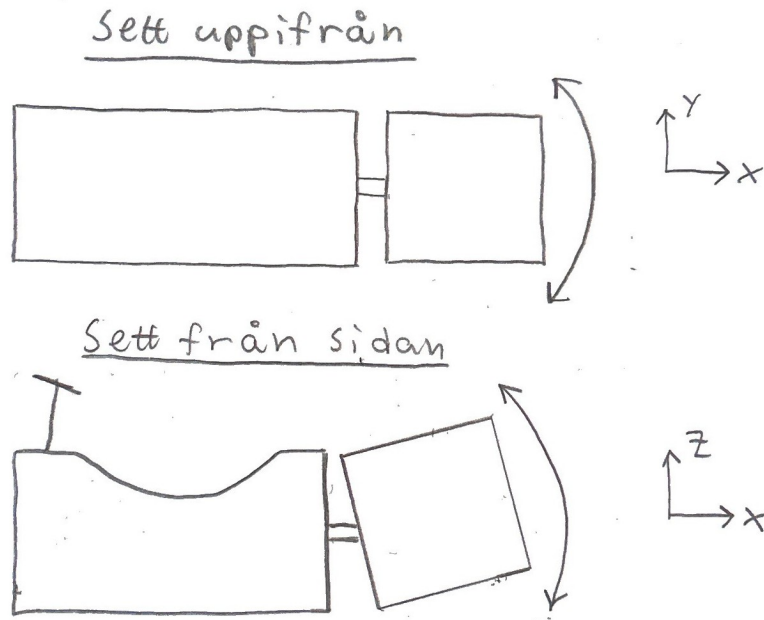 Sett uppifrån
Y
X
Sett från sidan
Z
X